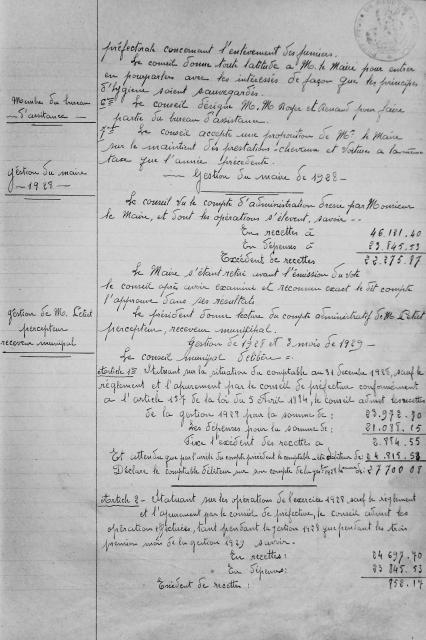 préfectorale concernant l'enlèvement des fumiers.
Le conseil donne toute latitude à M. le Maire pour entrer
en pourparlers avec les intéressés de façon que les principes
d'hygiène soient sauvegardés.
Membre du bureau
d'assistance
6° Le conseil désigne M. M. et Renaud pour faire
partie du bureau d'assistance.
7° Le conseil accepte une proposition de Mr le Maire
sur le maintien des prestations: chevaux et voitures à la même
taxe que l'année précédente.
Gestion du maire
- 1928 -
Gestion du maire de 1928 -
Le conseil vu le compte d'administration dressé par Monsieur
le Maire, et dont les opérations s'élèvent, savoir --
En recettes à 46.121.40
En dépenses à 23.845.53
Excédent de recettes 22.275.87
Le Maire s'étant retiré avant l'émission du vote
le conseil après avoir examiné et reconnu exact le dit compte
l'approuve dans ses résultats
gestion de M. Létat
percepteur
receveur municipal
Le président donne lecture du compte administratif de M. Létat
percepteur, receveur municipal.
Gestion de 1928 et 3 mois de 1929 -
Le conseil municipal délibère =
Article 1er Statuant sur la situation du comptable au 31 décembre 1928, sauf le
règlement et l'apurement par le conseil de préfecture conformément
à l'article 157 de la loi du 5 Avril 1884, le conseil admet les recettes
de la gestion 1928 pour la somme de: 23.972.70
Les dépenses pour la somme de: 21.088.15
Fixe l'excédent des recettes à 2.884.55
Et attendu que par l'arrêté du compte précédent le comptable a été débiteur de 24.815.53
Déclare le comptable débiteur sur son compte de la gest 1928 de: 27700 08
Article 2 - Statuant sur les opérations de l'exercice 1928, sauf le règlement
et l'apurement par le conseil de préfecture, le conseil admet les
opérations effectuées, tant pendant la gestion 1928 que pendant les trois
premiers mois de la gestion 1929 savoir.
En recettes: 24 697.70
En dépenses: 23 845.53
Excédent de recettes: 852.17